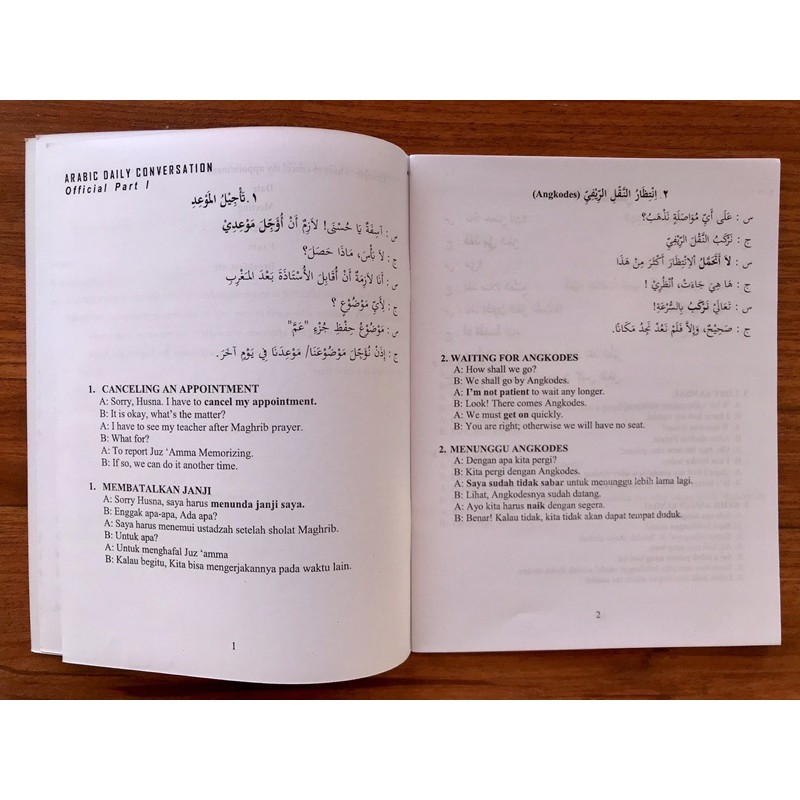 ARABIC DAILY CONVERSATION
Official Part 1
١. تَأْجِيْلُ المَوْعِدِ
س : آسِفَةٌ يَا حُسْنَى! لاَزِمٌ أَنْ أُؤَجِّلَ مَوْعِدِيْ
ج : لاَ بَأْسَ، مَاذَا حَصَلَ؟
س : أَنَا لاَزِمَةٌ أَنْ أُقَابِلَ الأُسْتَاذَةَ بَعْدَ المَغْرِبِ
ج : لِأَيِّ مَوْضُوْعٍ ؟
س : مَوْضُوْعُ حِفْظِ جُزْءِ "عَمَّ"
ج : إِذَنْ نُؤَجِّلَ مَوْضُوْعَنَا/ مَوْعِدَنَا فِي يَوْمٍ آخَرَ.
1. CANCELING AN APPOINTMENT
A: Sorry, Husna. I have to cancel my appointment.
B: It is okay, what's the matter?
A: I have to see my teacher after Maghrib prayer.
B: What for?
A: To report Juz 'Amma Memorizing.
B: If so, we can do it another time.
1. MEMBATALKAN JANJI
A: Sorry Husna, saya harus menunda janji saya.
B: Enggak apa-apa, Ada apa?
A: Saya harus menemui ustadzah setelah sholat Maghrib.
B: Untuk apa?
A: Untuk menghafal Juz 'amma
B: Kalau begitu, Kita bisa mengerjakannya pada waktu lain.
1
٢. اِنْتِظَارُ النَّقْلِ الرِّيْفِيِّ (Angkodes)
س : عَلَى أَيِّ مُوَاصَلَةٍ نَذْهَبُ؟
ج : نَرْكَبُ النَّقْلَ الرِّيْفِيَّ
س : لاَ أَتَحَمَّلُ الاِنْتِظَارَ أَكْثَرَ مِنْ هَذَا
ج : هَا هِيَ جَاءَتْ، اُنْظُرِيْ !
س : تَعَالَيْ نَرْكَبُ بِالسُّرْعَةِ!
ج : صَحِيْحٌ، وَإِلاَّ فَلَمْ نَعُدْ نَجِدُ مَكَانًا.
2. WAITING FOR ANGKODES
A: How shall we go?
B: We shall go by Angkodes.
A: I'm not patient to wait any longer.
B: Look! There comes Angkodes.
A: We must get on quickly.
B: You are right; otherwise we will have no seat.
2. MENUNGGU ANGKODES
A: Dengan apa kita pergi?
B: Kita pergi dengan Angkodes.
A: Saya sudah tidak sabar untuk menunggu lebih lama lagi.
B: Lihat, Angkodesnya sudah datang.
A: Ayo kita harus naik dengan segera.
B: Benar! Kalau tidak, kita tidak akan dapat tempat duduk.
2